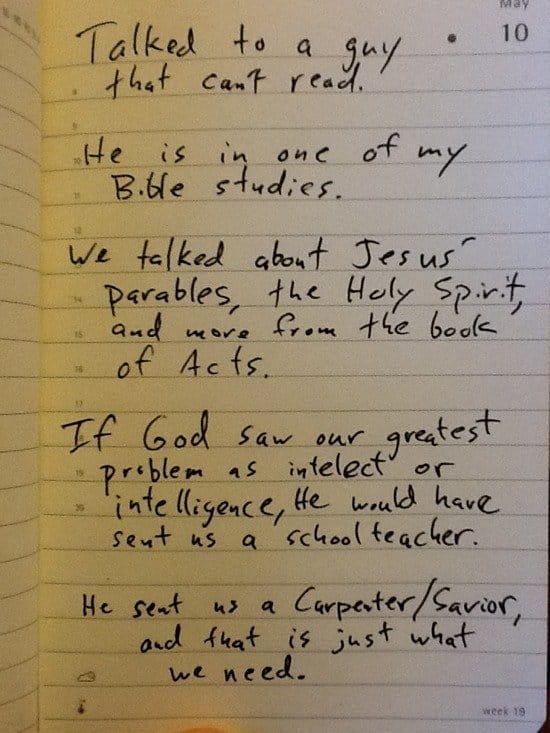 May
10
Talked to a guy
that can't read.
He is in one of my
Bible studies.
We talked about Jesus'
parables, the Holy Spirit,
and more from the book
of Acts.
If God saw our greatest
problem as intelect or
intelligence, He would have
sent us a school teacher.
He sent us a Carpenter/Savior,
and that is just what
we need.
week 19